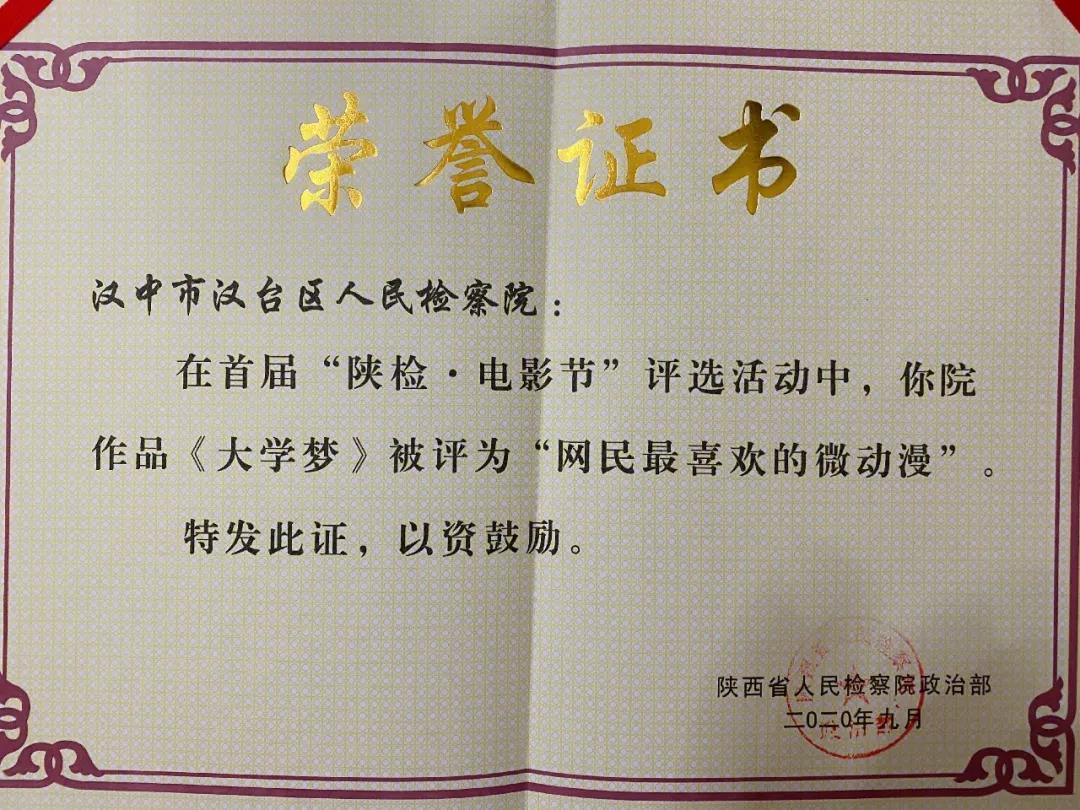 荣誉证书
汉中市汉台区人民检察院：
在首届“陕检·电影节”评选活动中，你院
作品《大学梦》被评为“网民最喜欢的微动漫”。
特发此证，以资鼓励。
陕西省人民检察院政治部
二〇二〇年九月